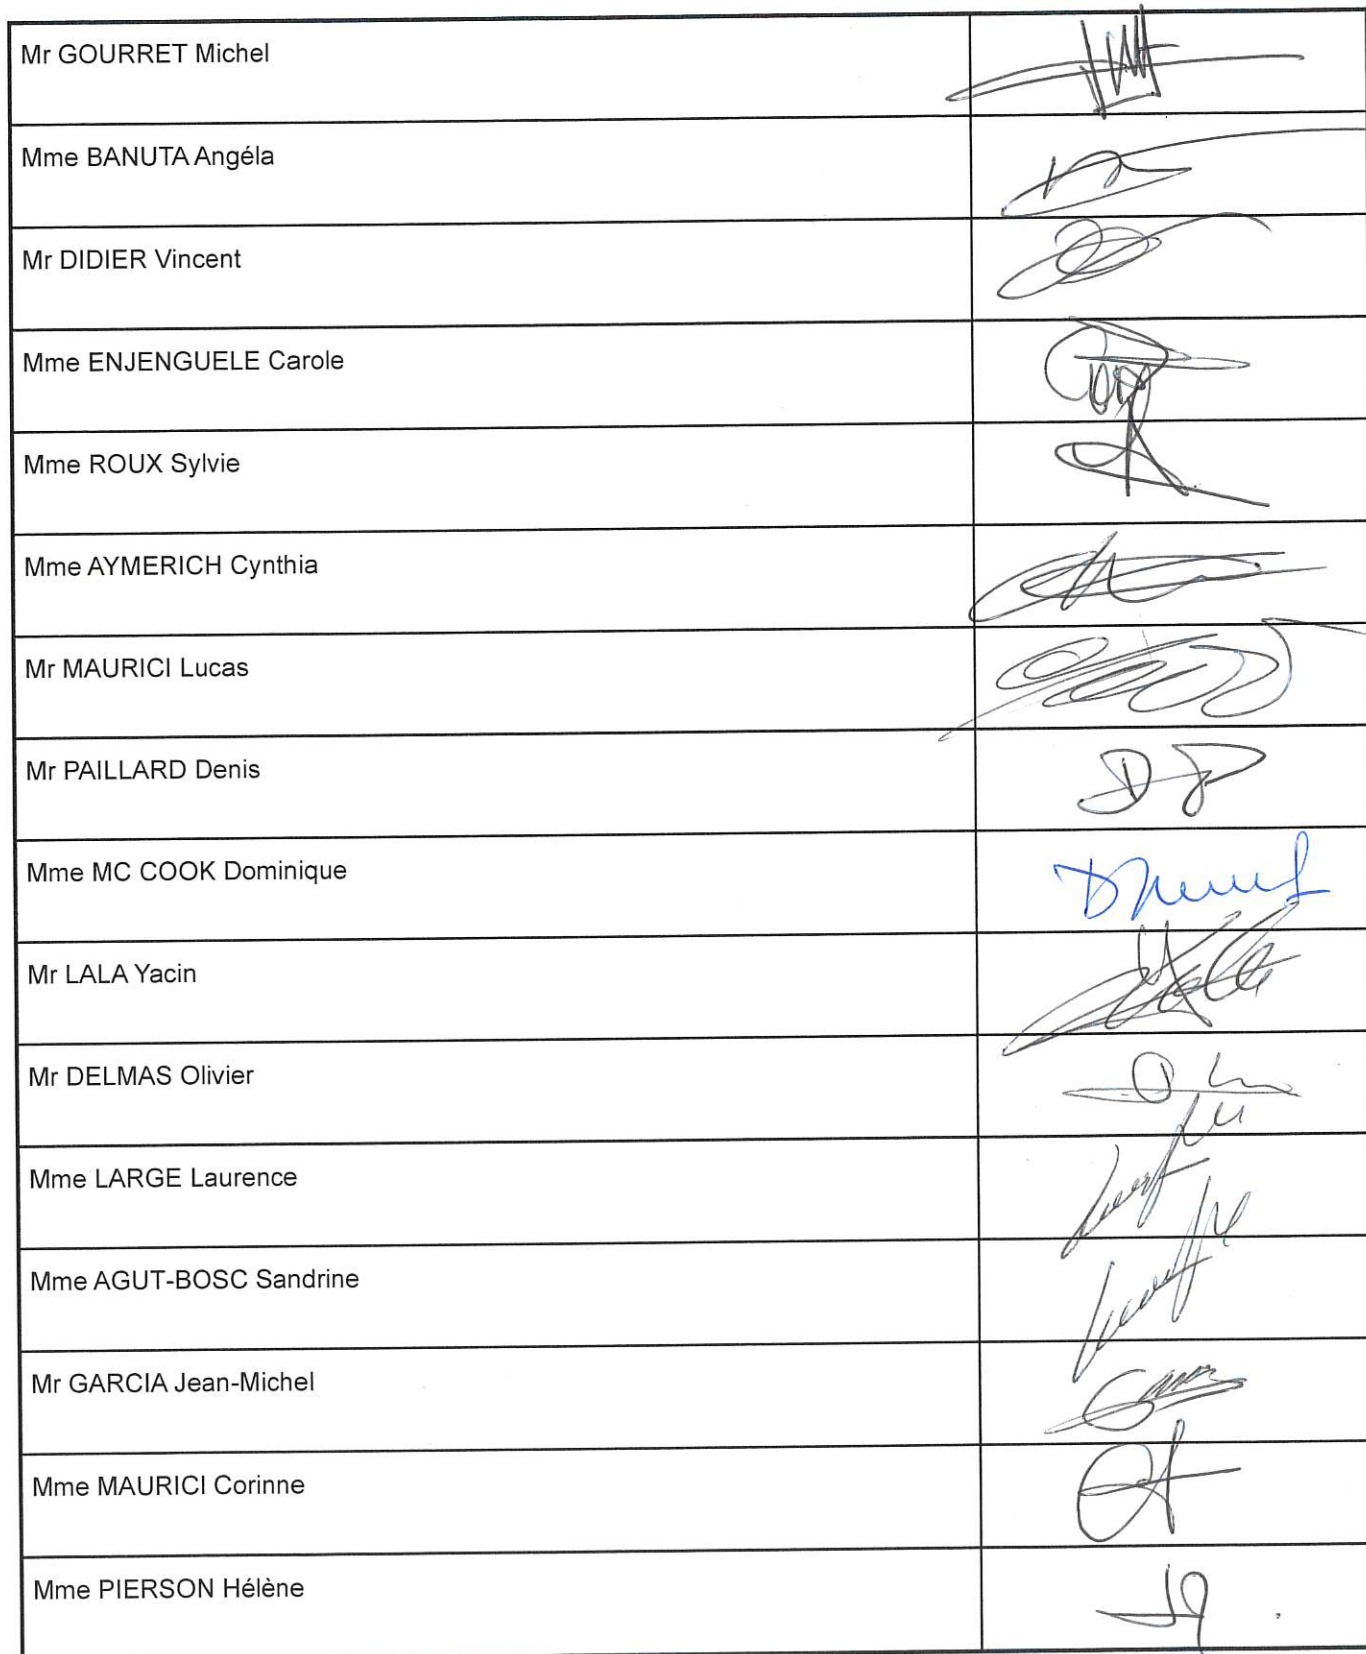 Mr GOURRET Michel
Mme BANUTA Angéla
Mr DIDIER Vincent
Mme ENJENGUELE Carole
Mme ROUX Sylvie
Mme AYMERICH Cynthia
Mr MAURICI Lucas
Mr PAILLARD Denis
Mme MC COOK Dominique
Mr LALA Yacin
Mr DELMAS Olivier
Mme LARGE Laurence
Mme AGUT-BOSC Sandrine
Mr GARCIA Jean-Michel
Mme MAURICI Corinne
Mme PIERSON Hélène